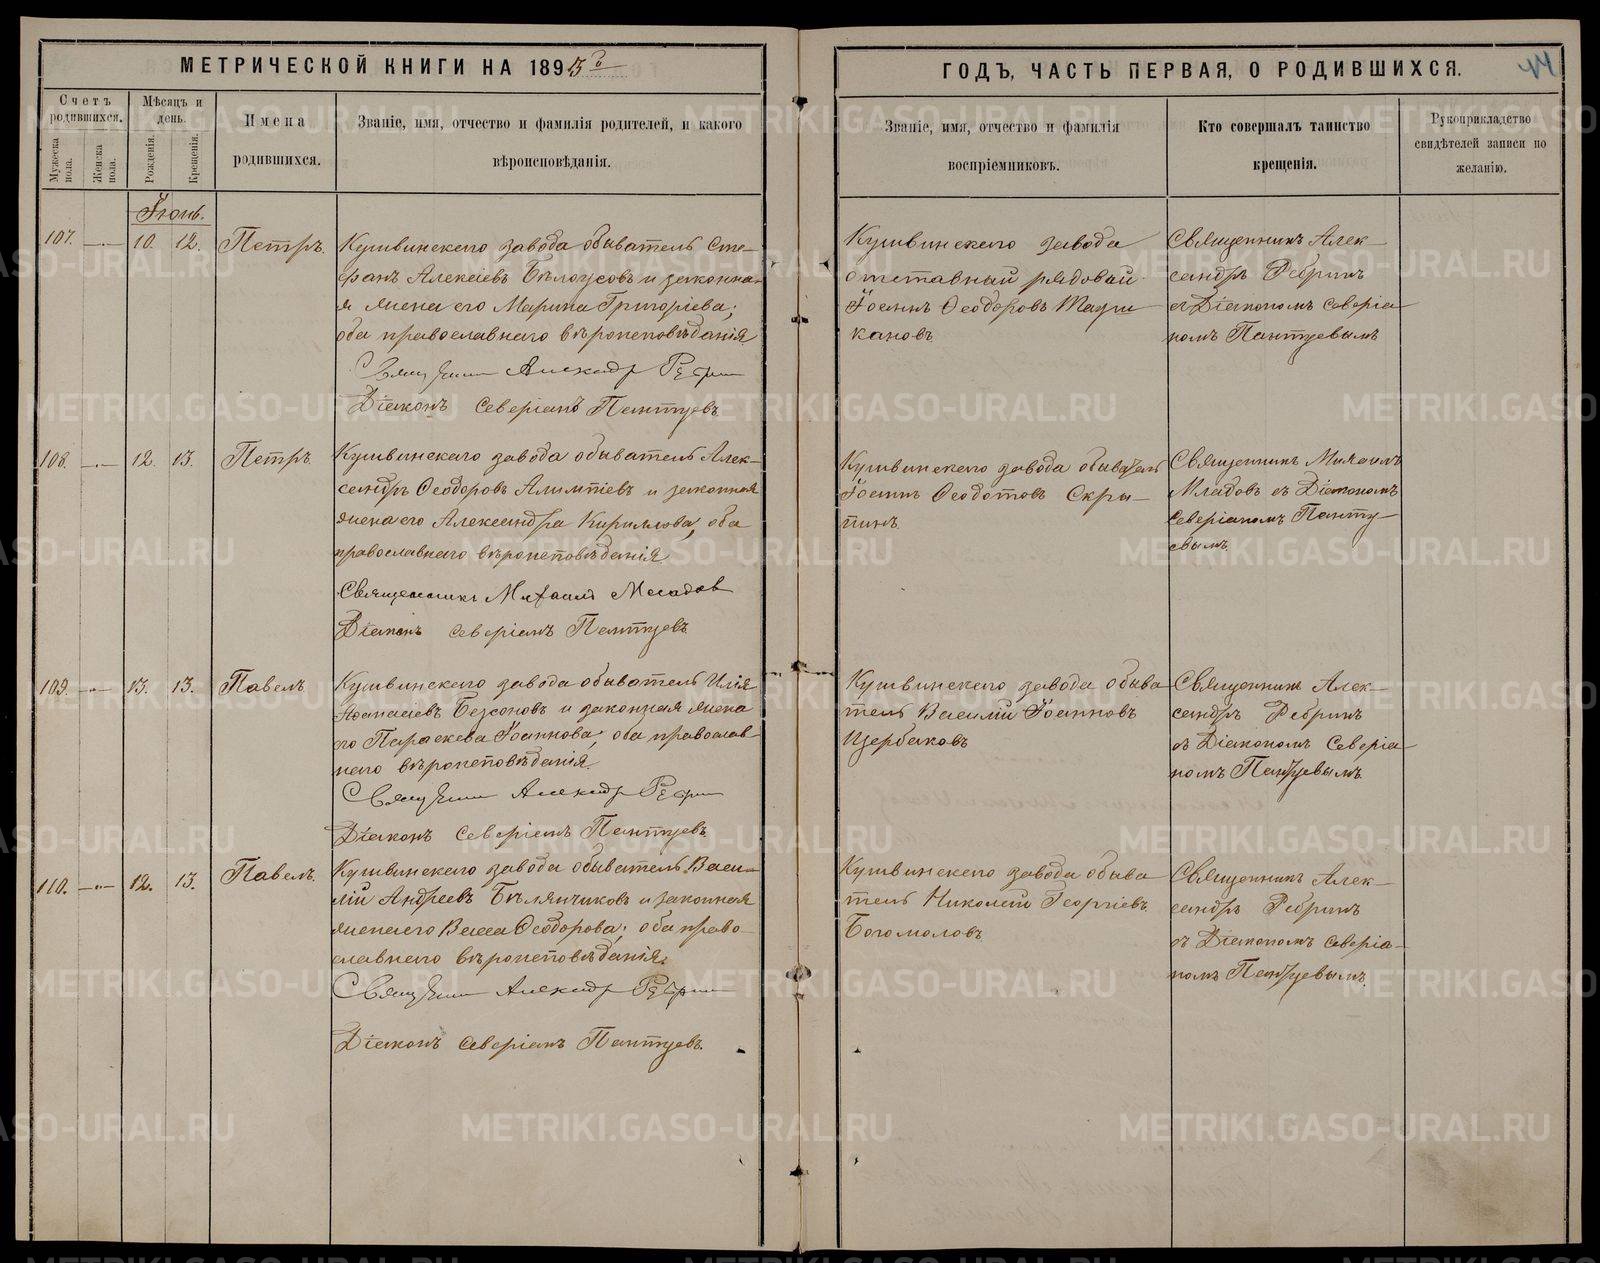 МЕТРИЧЕСКОЙ КНИГИ НА 1893й
ГОДЪ, ЧАСТЬ ПЕРВАЯ, О РОДИВШИХСЯ.
Счетъ родившихся.
Мужеска пола.
Женска пола.
Мѣсяцъ и день.
Рожденія.
Крещенія.
Имена
родившихся.
Званіе, имя, отчество и фамилія родителей, и какого
вѣроисповѣданія.
Званіе, имя, отчество и фамилія
воспріемниковъ.
Кто совершалъ таинство
крещенія.
Рукоприкладство
свидѣтелей записи по
желанію.
Іюнь.
107. 10. 12. Петръ.
Кушвинскаго завода обыватель Сте-
фанъ Алексіевъ Бѣлоусовъ и законна-
я жена его Марина Григоріева;
оба православнаго вѣроисповѣданія.
Священникъ Александр Ребрин
Діаконъ Северіанъ Пантуевъ
Кушвинскаго завода
отставный рядовый
Іоаннъ Ѳеодоровъ
кановъ
Священникъ Алек-
сандръ Ребринъ
съ Діакономъ Северіа-
номъ Пантуевымъ
108. 12. 13. Петръ.
Кушвинскаго завода обыватель Алек-
сандръ Ѳеодоровъ Алимпіевъ и законная
жена его Александра Кириллова, оба
православнаго вѣроисповѣданія.
Священникъ Михаилъ Младов
Діаконъ Северіанъ Пантуевъ
Кушвинскаго завода обыватель
Іоаннъ Ѳеодотовъ Скры-
пинъ
Священникъ Михаилъ
Младовъ съ Діакономъ
Северіаномъ Панту-
евымъ.
109. 13. 13. Павелъ.
Кушвинскаго завода обыватель Илія
Аѳанасіевъ Безсоновъ и законная жена
его Параскева Іоаннова; оба православ-
наго вѣроисповѣданія.
Священник Александр Ребрин
Діаконъ Северіанъ Пантуевъ
Кушвинскаго завода обыва-
тель Василій Іоанновъ
Щербаковъ
Священникъ Алек-
сандръ Ребринъ
съ Діакономъ Северіа-
номъ Пантуевымъ.
110. 12. 13. Павелъ.
Кушвинскаго завода обыватель Васи-
лій Андреевъ Бѣлянчиковъ и законная
жена его Васса Ѳеодорова; оба право-
славнаго вѣроисповѣданія.
Священник Александр Ребрин
Діаконъ Северіанъ Пантуевъ.
Кушвинскаго завода обыва-
тель Николай Георгіевъ
Богомоловъ
Священникъ Алек-
сандръ Ребринъ
съ Діакономъ Северіа-
номъ Пантуевымъ.
METRIKI.GASO-URAL.RU